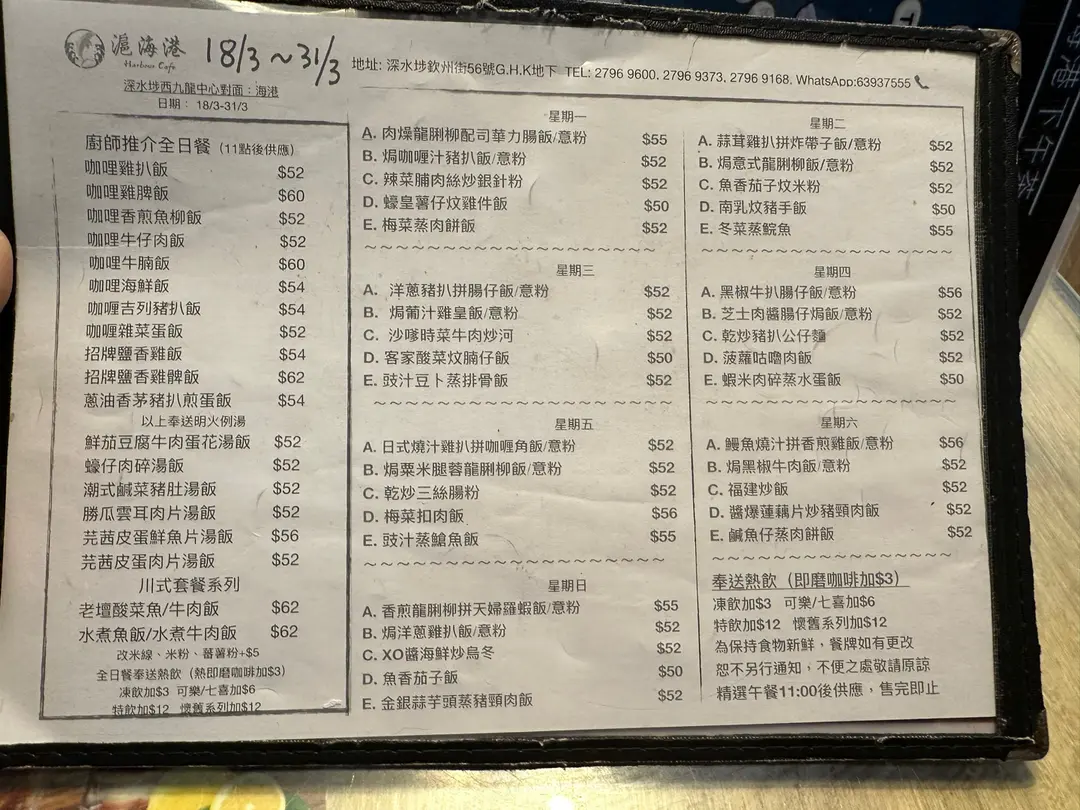 滬海港
Harbour Cafe
18/3~31/3
地址: 深水埗欽州街56號G.H.K地下 TEL: 2796 9600, 2796 9373, 2796 9168. WhatsApp:63937555
深水埗西九龍中心對面：海港
日期： 18/3-31/3
廚師推介全日餐（11點後供應）
咖哩雞扒飯 $52
咖哩雞脾飯 $60
咖哩香煎魚柳飯 $52
咖哩牛仔肉飯 $52
咖哩牛腩飯 $60
咖哩海鮮飯 $54
咖喱吉列豬扒飯 $54
咖喱雜菜蛋飯 $52
招牌鹽香雞飯 $54
招牌鹽香雞髀飯 $62
蔥油香茅豬扒煎蛋飯 $54
以上奉送明火例湯
鮮茄豆腐牛肉蛋花湯飯 $52
蠔仔肉碎湯飯 $52
潮式鹹菜豬肚湯飯 $52
勝瓜雲耳肉片湯飯 $52
芫茜皮蛋鮮魚片湯飯 $56
芫茜皮蛋肉片湯飯 $52
川式套餐系列
老壇酸菜魚/牛肉飯 $62
水煮魚飯/水煮牛肉飯 $62
改米線、米粉、蕃薯粉+$5
全日餐奉送熱飲（熱即磨咖啡加$3）
凍飲加$3 可樂/七喜加$6
特飲加$12 懷舊系列加$12
星期一
A. 肉燥龍脷柳配司華力腸飯/意粉 $55
B. 焗咖喱汁豬扒飯/意粉 $52
C. 辣菜脯肉絲炒銀針粉 $52
D. 蠔皇薯仔炆雞件飯 $50
E. 梅菜蒸肉餅飯 $52
星期二
A. 蒜茸雞扒拼炸帶子飯/意粉 $52
B. 焗意式龍脷柳飯/意粉 $52
C. 魚香茄子炆米粉 $52
D. 南乳炆豬手飯 $50
E. 冬菜蒸鯇魚 $55
星期三
A. 洋蔥豬扒拼腸仔飯/意粉 $52
B. 焗葡汁雞皇飯/意粉 $52
C. 沙嗲時菜牛肉炒河 $52
D. 客家酸菜炆腩仔飯 $50
E. 豉汁豆卜蒸排骨飯 $52
星期四
A. 黑椒牛扒腸仔飯/意粉 $56
B. 芝士肉醬腸仔焗飯/意粉 $52
C. 乾炒豬扒公仔麵 $52
D. 菠蘿咕嚕肉飯 $52
E. 蝦米肉碎蒸水蛋飯 $50
星期五
A. 日式燒汁雞扒拼咖喱角飯/意粉 $52
B. 焗粟米腿蓉龍脷柳飯/意粉 $52
C. 乾炒三絲腸粉 $52
D. 梅菜扣肉飯 $56
E. 豉汁蒸鯧魚飯 $55
星期六
A. 鰻魚燒汁拼香煎雞飯/意粉 $56
B. 焗黑椒牛肉飯/意粉 $52
C. 福建炒飯 $52
D. 醬爆蓮藕片炒豬頸肉飯 $52
E. 鹹魚仔蒸肉餅飯 $52
星期日
A. 香煎龍脷柳拼天婦羅蝦飯/意粉 $55
B. 焗洋蔥雞扒飯/意粉 $52
C. XO醬海鮮炒烏冬 $52
D. 魚香茄子飯 $50
E. 金銀蒜芋頭蒸豬頸肉飯 $52
奉送熱飲（即磨咖啡加$3）
凍飲加$3 可樂/七喜加$6
特飲加$12 懷舊系列加$12
為保持食物新鮮，餐牌如有更改
恕不另行通知，不便之處敬請原諒
精選午餐11:00後供應，售完即止